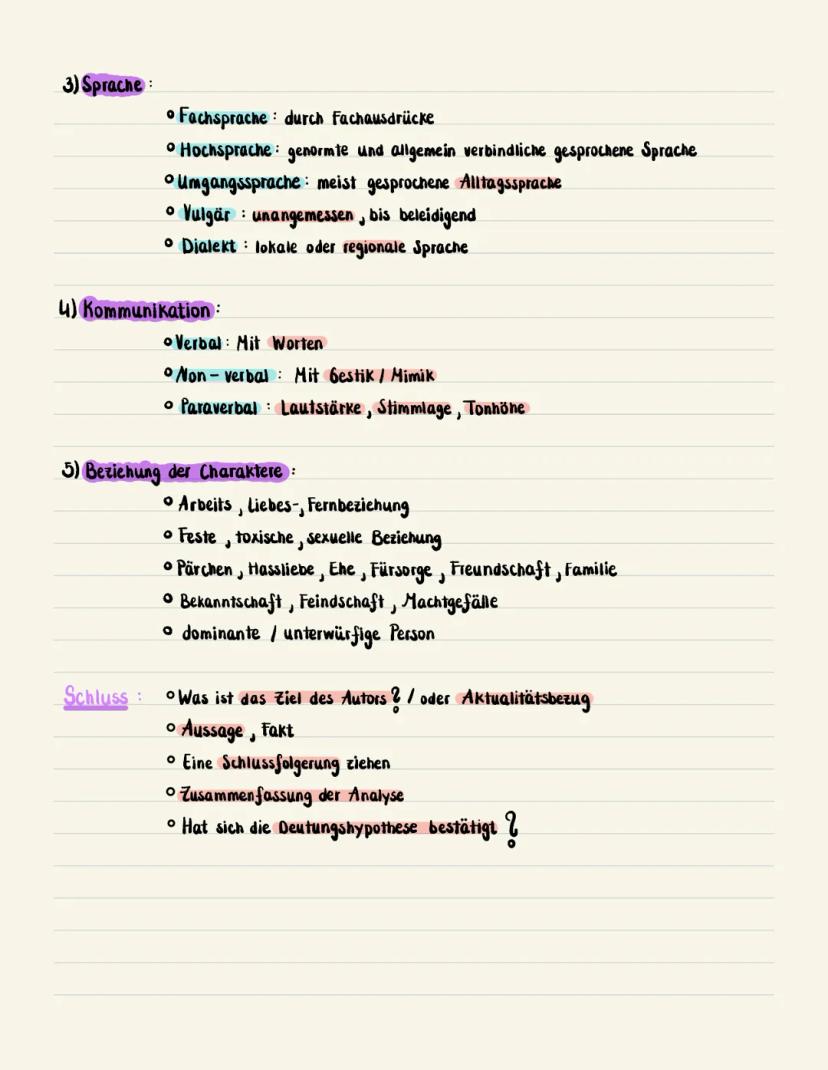 3) Sprache :
° Fachsprache : durch Fachausdrücke
° Hochsprache : genormte und allgemein verbindliche gesprochene Sprache
° Umgangssprache : meist gesprochene Alltagssprache
° Vulgär : unangemessen , bis beleidigend
° Dialekt : lokale oder regionale Sprache
4) Kommunikation :
° Verbal : Mit Worten
° Non - verbal : Mit Gestik / Mimik
° Paraverbal : Lautstärke , Stimmlage , Tonhöhe
5) Beziehung der Charaktere :
° Arbeits , Liebes- , Fernbeziehung
° Feste , toxische , sexuelle Beziehung
° Pärchen , Hassliebe , Ehe , Fürsorge , Freundschaft , Familie
° Bekanntschaft , Feindschaft , Machtgefälle
° dominante / unterwürfige Person
Schluss : ° Was ist das Ziel des Autors ? / oder Aktualitätsbezug
° Aussage , Fakt
° Eine Schlussfolgerung ziehen
° Zusammenfassung der Analyse
° Hat sich die Deutungshypothese bestätigt ?